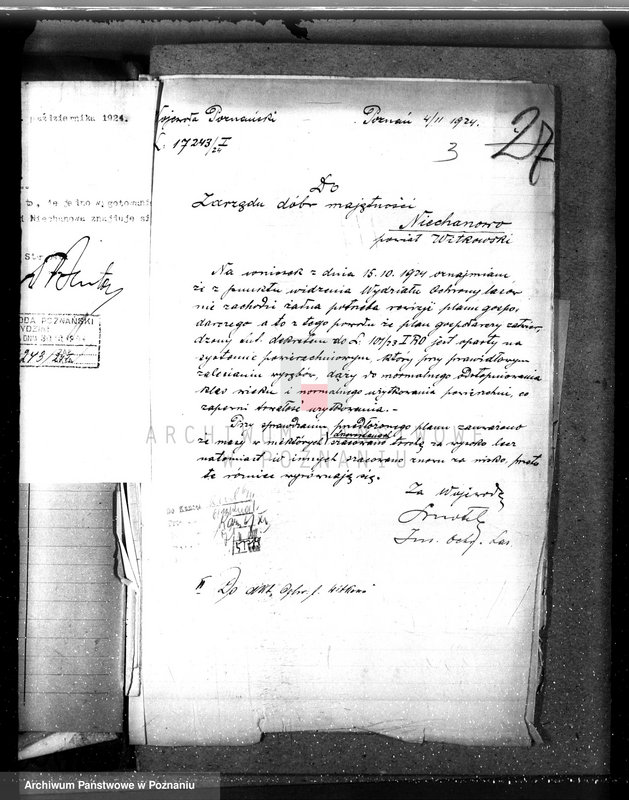 października 1924.
to, że jedno wygotowanie
i Niechanowo znajduje się
Wojewoda Poznański
Poznań 4/11 1924.
L. 17243/24 I
3
27
Do
Zarządu dóbr majętności
Niechanowo
powiat Witkowski
Na wniosek z dnia 15.10.1924 oznajmiam
że z punktu widzenia Wydziału Ochrony lasów
nie zachodzi żadna potrzeba rewizji planu gospo-
darczego a to z tego powodu że plan gospodarczy zatwier-
dzony tut. dekretem do L. 101/23 I RO jest oparty na
systemie powierzchniowym, który przy prawidłowym
zalesianiu wyrębów, dąży do normalnego
klas wieku i normalnego użytkowania powierzchni, co
zapewni trwałość użytkowania.-
Przy sprawdzaniu przedłożonego planu zauważono
że masę w niektórych drzewostanach szacowano trochę za wysoko lecz
natomiast w innych szacowano znowu za nisko, przeto
te różnice wyrównają się.
Za Wojewodę
Ins. Ochr. Las
II Do akt.
WOJEWODA POZNAŃSKI
ARCHIWUM PAŃSTWOWE
W POZNANIU
Archiwum Państwowe w Poznaniu